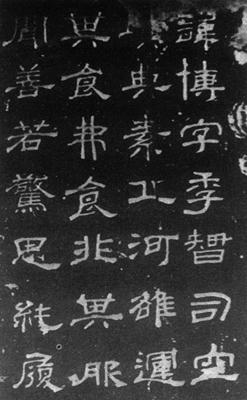 諱博字季智司空
典素丘河雒運
其食弗食非其服
聞善若驚思純履